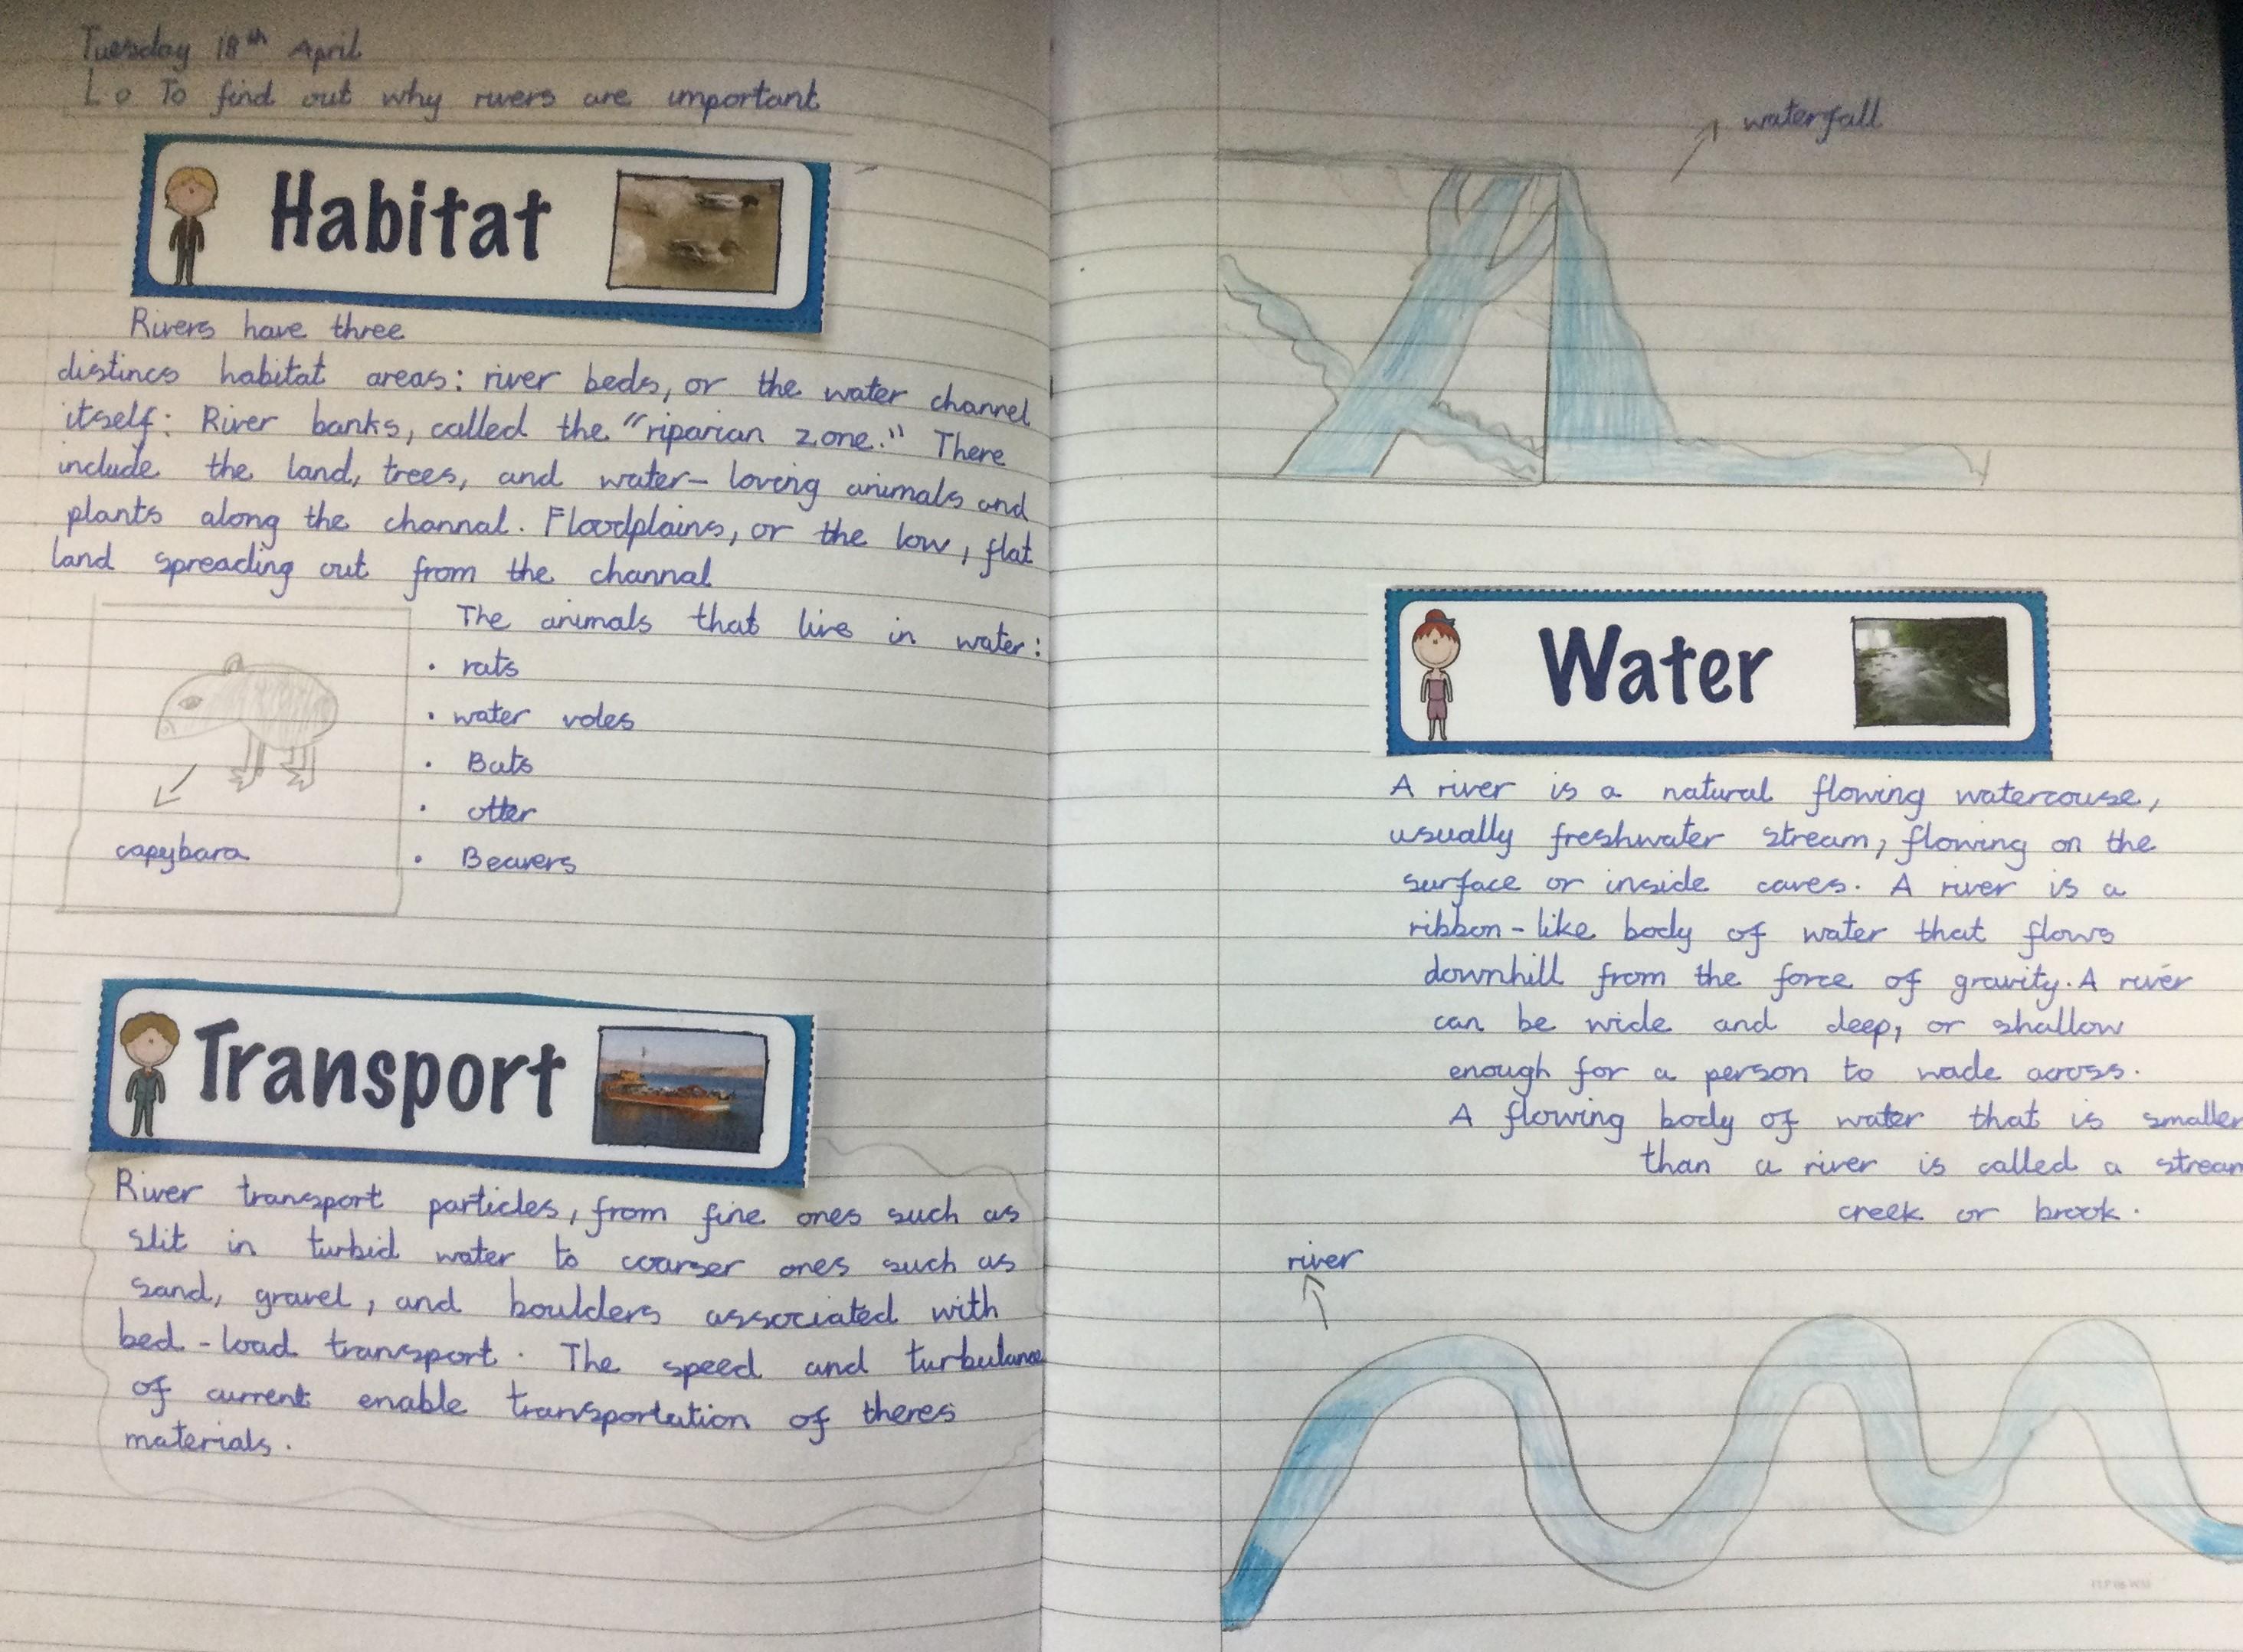 Tuesday 18th April
L o To find out why rivers are important
Habitat
Rivers have three
distincs habitat areas: river beds, or the water channel
itself: River banks, called the "riparian zone." There
include the land, trees, and water- loving animals and
plants along the channal. Floodplains, or the low, flat
land spreading out from the channal
The animals that live in water:
• rats
• water voles
• Bats
• otter
• Beavers
capybara
Transport
River transport particles, from fine ones such as
slit in turbid water to coarser ones such as
sand, gravel, and boulders associated with
bed-load transport. The speed and turbulance
of current enable transportation of theres
materials.
waterfall
Water
A river is a natural flowing watercouse,
usually freshwater stream, flowing on the
surface or inside caves. A river is a
ribbon-like body of water that flows
downhill from the force of gravity. A river
can be wide and deep, or shallow
enough for a person to wade across.
A flowing body of water that is smaller
than a river is called a stream
creek or brook.
river